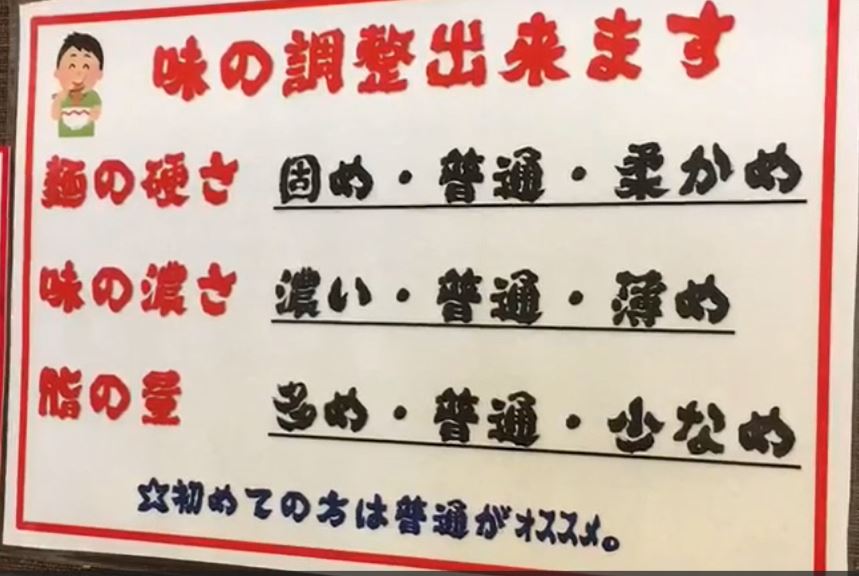 味の調整出来ます
麺の硬さ 固め・普通・柔かめ
味の濃さ 濃い・普通・薄め
脂の量 多め・普通・少なめ
☆初めての方は普通がオススメ。